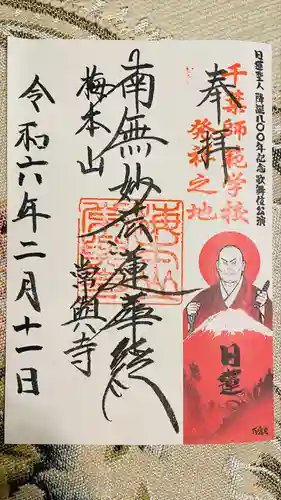 日蓮聖人 降誕八〇〇年記念歌舞伎公演
千葉師範学校
発祥之地
奉拝
南無妙法蓮華経
梅本山
常興寺
令和六年二月十一日
日蓮